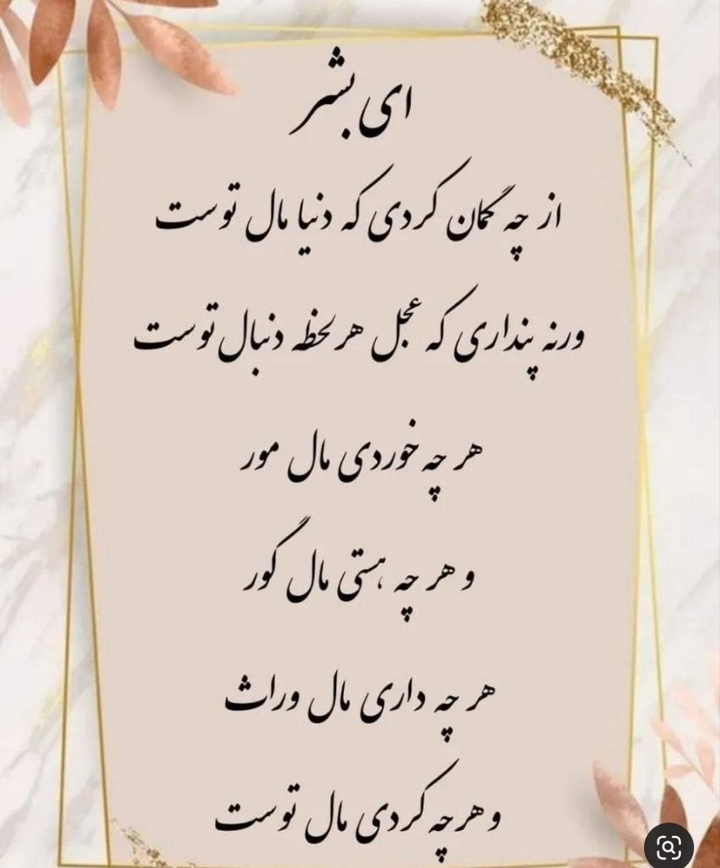 ای بشر
از چه گمان کردی که دنیا مال توست
ورنه پنداری که عجل هر لحظه دنبال توست
هر چه خوردی مال مور
و هر چه هستی مال گور
هر چه داری مال وراث
و هر چه کردی مال توست